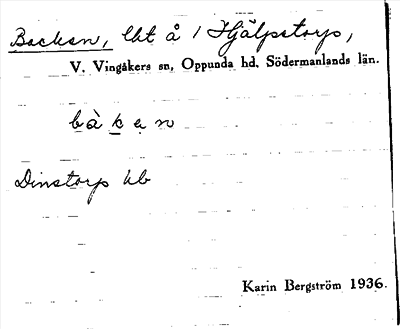 Backen, lht å 1 Hjälpstorp,
V. Vingåkers sn, Oppunda hd, Södermanlands län.
bàkęn
Dinstorp hb
Karin Bergström 1936.